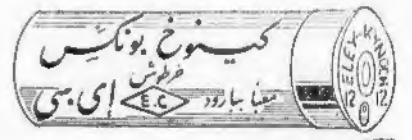 کینوخ بونکس
خرطوش
معبا ببارود E.C. ای سی
ELEY-KYNOCH
12 12